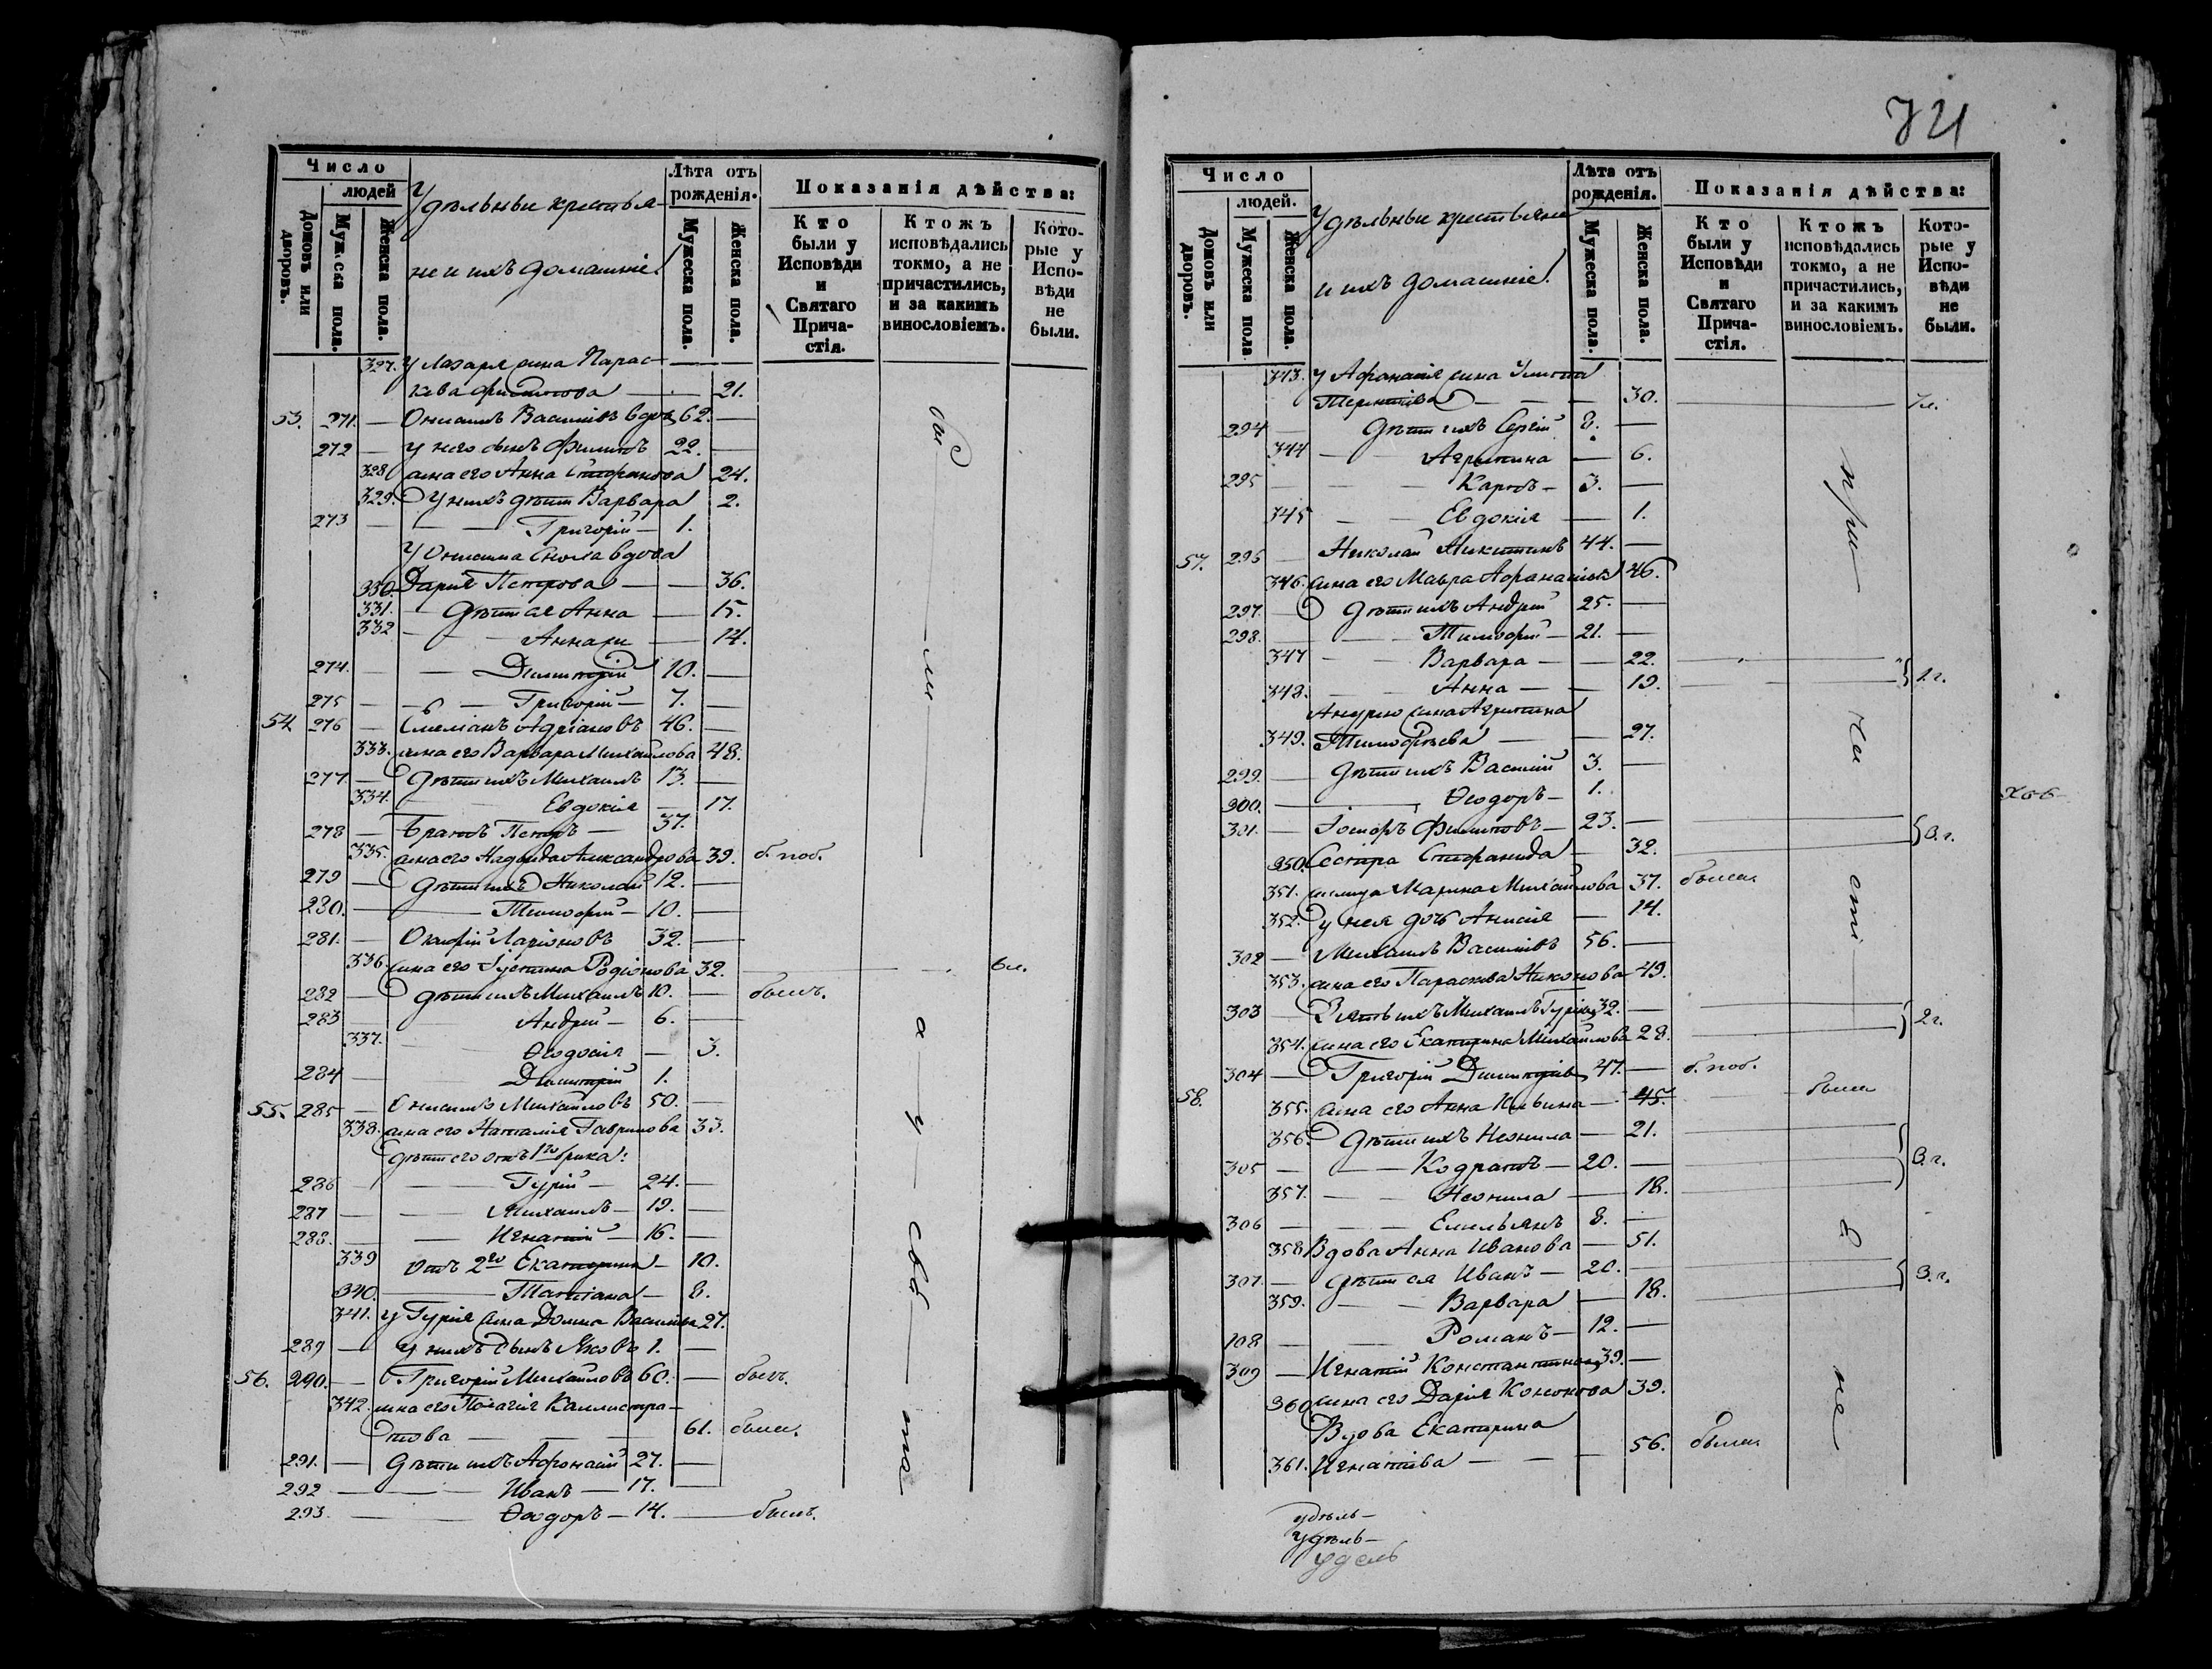 Число
людей
Домовъ или дворовъ.
Мужеска пола.
Женска пола.
Удѣльные крестья-
не и ихъ домашніе.
Лѣта отъ рожденія.
Мужеска пола.
Женска пола.
Показанія дѣйства:
Кто были у Исповѣди и Святаго Прича-стія.
Ктожъ исповѣдались токмо, а не причастились, и за какимъ винословіемъ.
Кото-рые у Испо-вѣди не были.
327. У Лазаря жена Парас-
кева 21.
53. 271. — Онисимъ Васильевъ вдов. 62. —
272 — у него сынъ Филиппъ 22. —
328 жена его Анна Стефанова 24.
329. У нихъ дѣти Варвара 2.
273 — — Григорій — 1.
У Онисима сноха вдова
330 Дарія Петрова — — 36.
331. — Дѣти ея Анна — 15.
332 — 14.
274. — — Димитрій 10. —
275 — — Григорій — 7. —
54 276 — Адріановъ 46. —
333. жена его Варвара Михайлова 48.
277 — Дѣти ихъ Михаилъ 13. —
334. Евдокія — 17.
278 — Братъ Петръ — 37.
335. жена его Надежда Александрова 39. б. поб.
279 — Дѣти ихъ Николай 12. —
280. — Тимофей — 10. —
281. — Ларіоновъ 32. —
336. жена его Іустина Родіонова 32. — 6 л.
282 — Дѣти ихъ Михаилъ 10. — былъ.
283 — Андрей — 6. —
337. Ѳеодосія — 3.
284 — Димитрій 1.
55. 285 — Онисимъ Михайловъ 50. —
338. жена его Наталія Гаврилова 33.
Дѣти его отъ 1го брака:
286 — — Гурій — 24. —
287 — Михаилъ — 19. —
288. — — Игнатій — 16. —
339 отъ 2го Екатерина — 10.
340. Татіана — 8.
341. у Гурія жена Домна Васильева 27.
289 — У нихъ сынъ Яковъ 1. —
56. 290. — Григорій Михайловъ 60. — былъ.
342. жена его Пелагія Каллистра-
това — — — 61. была.
291. — Дѣти ихъ Афонасій 27. —
292 — — Иванъ — 17. —
293. — — Ѳеодоръ — 14. — былъ.
Число
людей.
Домовъ или дворовъ.
Мужеска пола
Женска пола.
Удѣльные крестьяне
и ихъ домашніе.
Лѣта отъ рожденія.
Мужеска пола.
Женска пола.
Показанія дѣйства:
Кто были у Исповѣди и Святаго Прича-стія.
Ктожъ исповѣдались токмо, а не причастились, и за какимъ винословіемъ.
Кото-рые у Испо-вѣди не были.
343. у Афанасія жена
Терентіева — — — 30. —
294 — Дѣти ихъ Сергій 8. —
344 — — Агрипина — 6.
295 — — Карпъ — 3. —
345 — — Евдокія — 1.
57. 296 — Николай Никитинъ 44. —
346. жена его Мавра Афанасьева 46.
297 — Дѣти ихъ Андрей 25. —
298. — — Тимофей — 21. —
347 — — Варвара — — 22. —
348. — — Анна — — 19. — 1 г.
Андрею жена Агрипина
349. Тимофѣева — — 27.
299. — Дѣти ихъ Василій 3. —
300. — Ѳеодоръ — 1.
301. — Филиповъ — 23. —
350. Сестра Стефанида — 32. — 3. г.
351. Марина Михайлова 37. была.
352. у нея дочь Анисія — 14.
302 — Михаилъ Васильевъ 56. —
353. жена его Параскева Никонова 49.
303 — Зять ихъ Михаилъ 32. —
354. жена его Екатерина Михайлова 28. — 2 г.
304 — Григорій Димитріевъ 47. — б. поб.
58. 355. жена его Анна Ильина — 45. — была
356. Дѣти ихъ Неонила — 21. —
305 — — Кодратъ — 20. — 3. г.
357. — — Неонила — 18. —
306 — — — Емельянъ 8. —
358 Вдова Анна Иванова — 51.
307. — Дѣти ея Иванъ — 20. —
359. — — Варвара — 18. — 3. г.
108 — Романъ — 12. —
309 — Игнатій Константиновъ 39. —
360. жена его Дарія Кононова 39.
Вдова Екатерина
361. Игнатіева — — — 56. была
удѣль-
удѣль-
удель